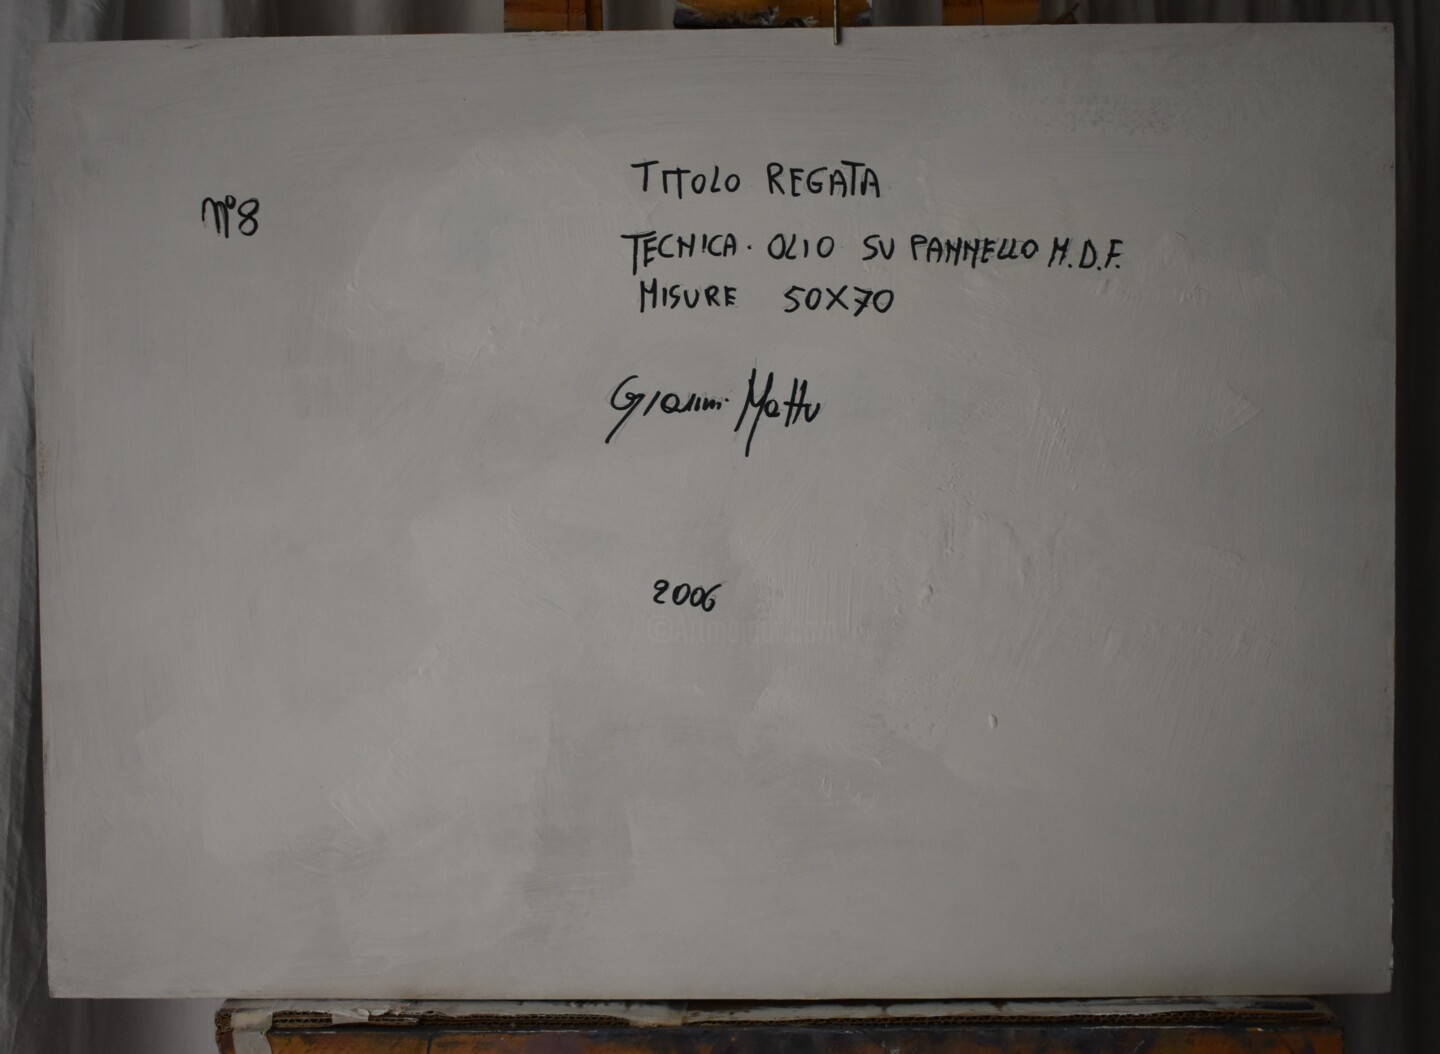 N°8
TITOLO REGATA
TECNICA. OLIO SU PANNELLO M.D.F.
MISURE 50X70
Gianni Mattu
2006
©Artmajeur.com